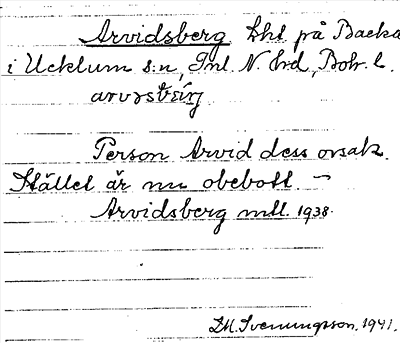 Arvidsberg lht på Backa
i Ucklum s:n, Inl. N. hd, Boh. l.
Person Arvid dess orsak.
Stället är nu obebott. —
Arvidsberg mtl. 1938.
H. Svenungsson. 1941.